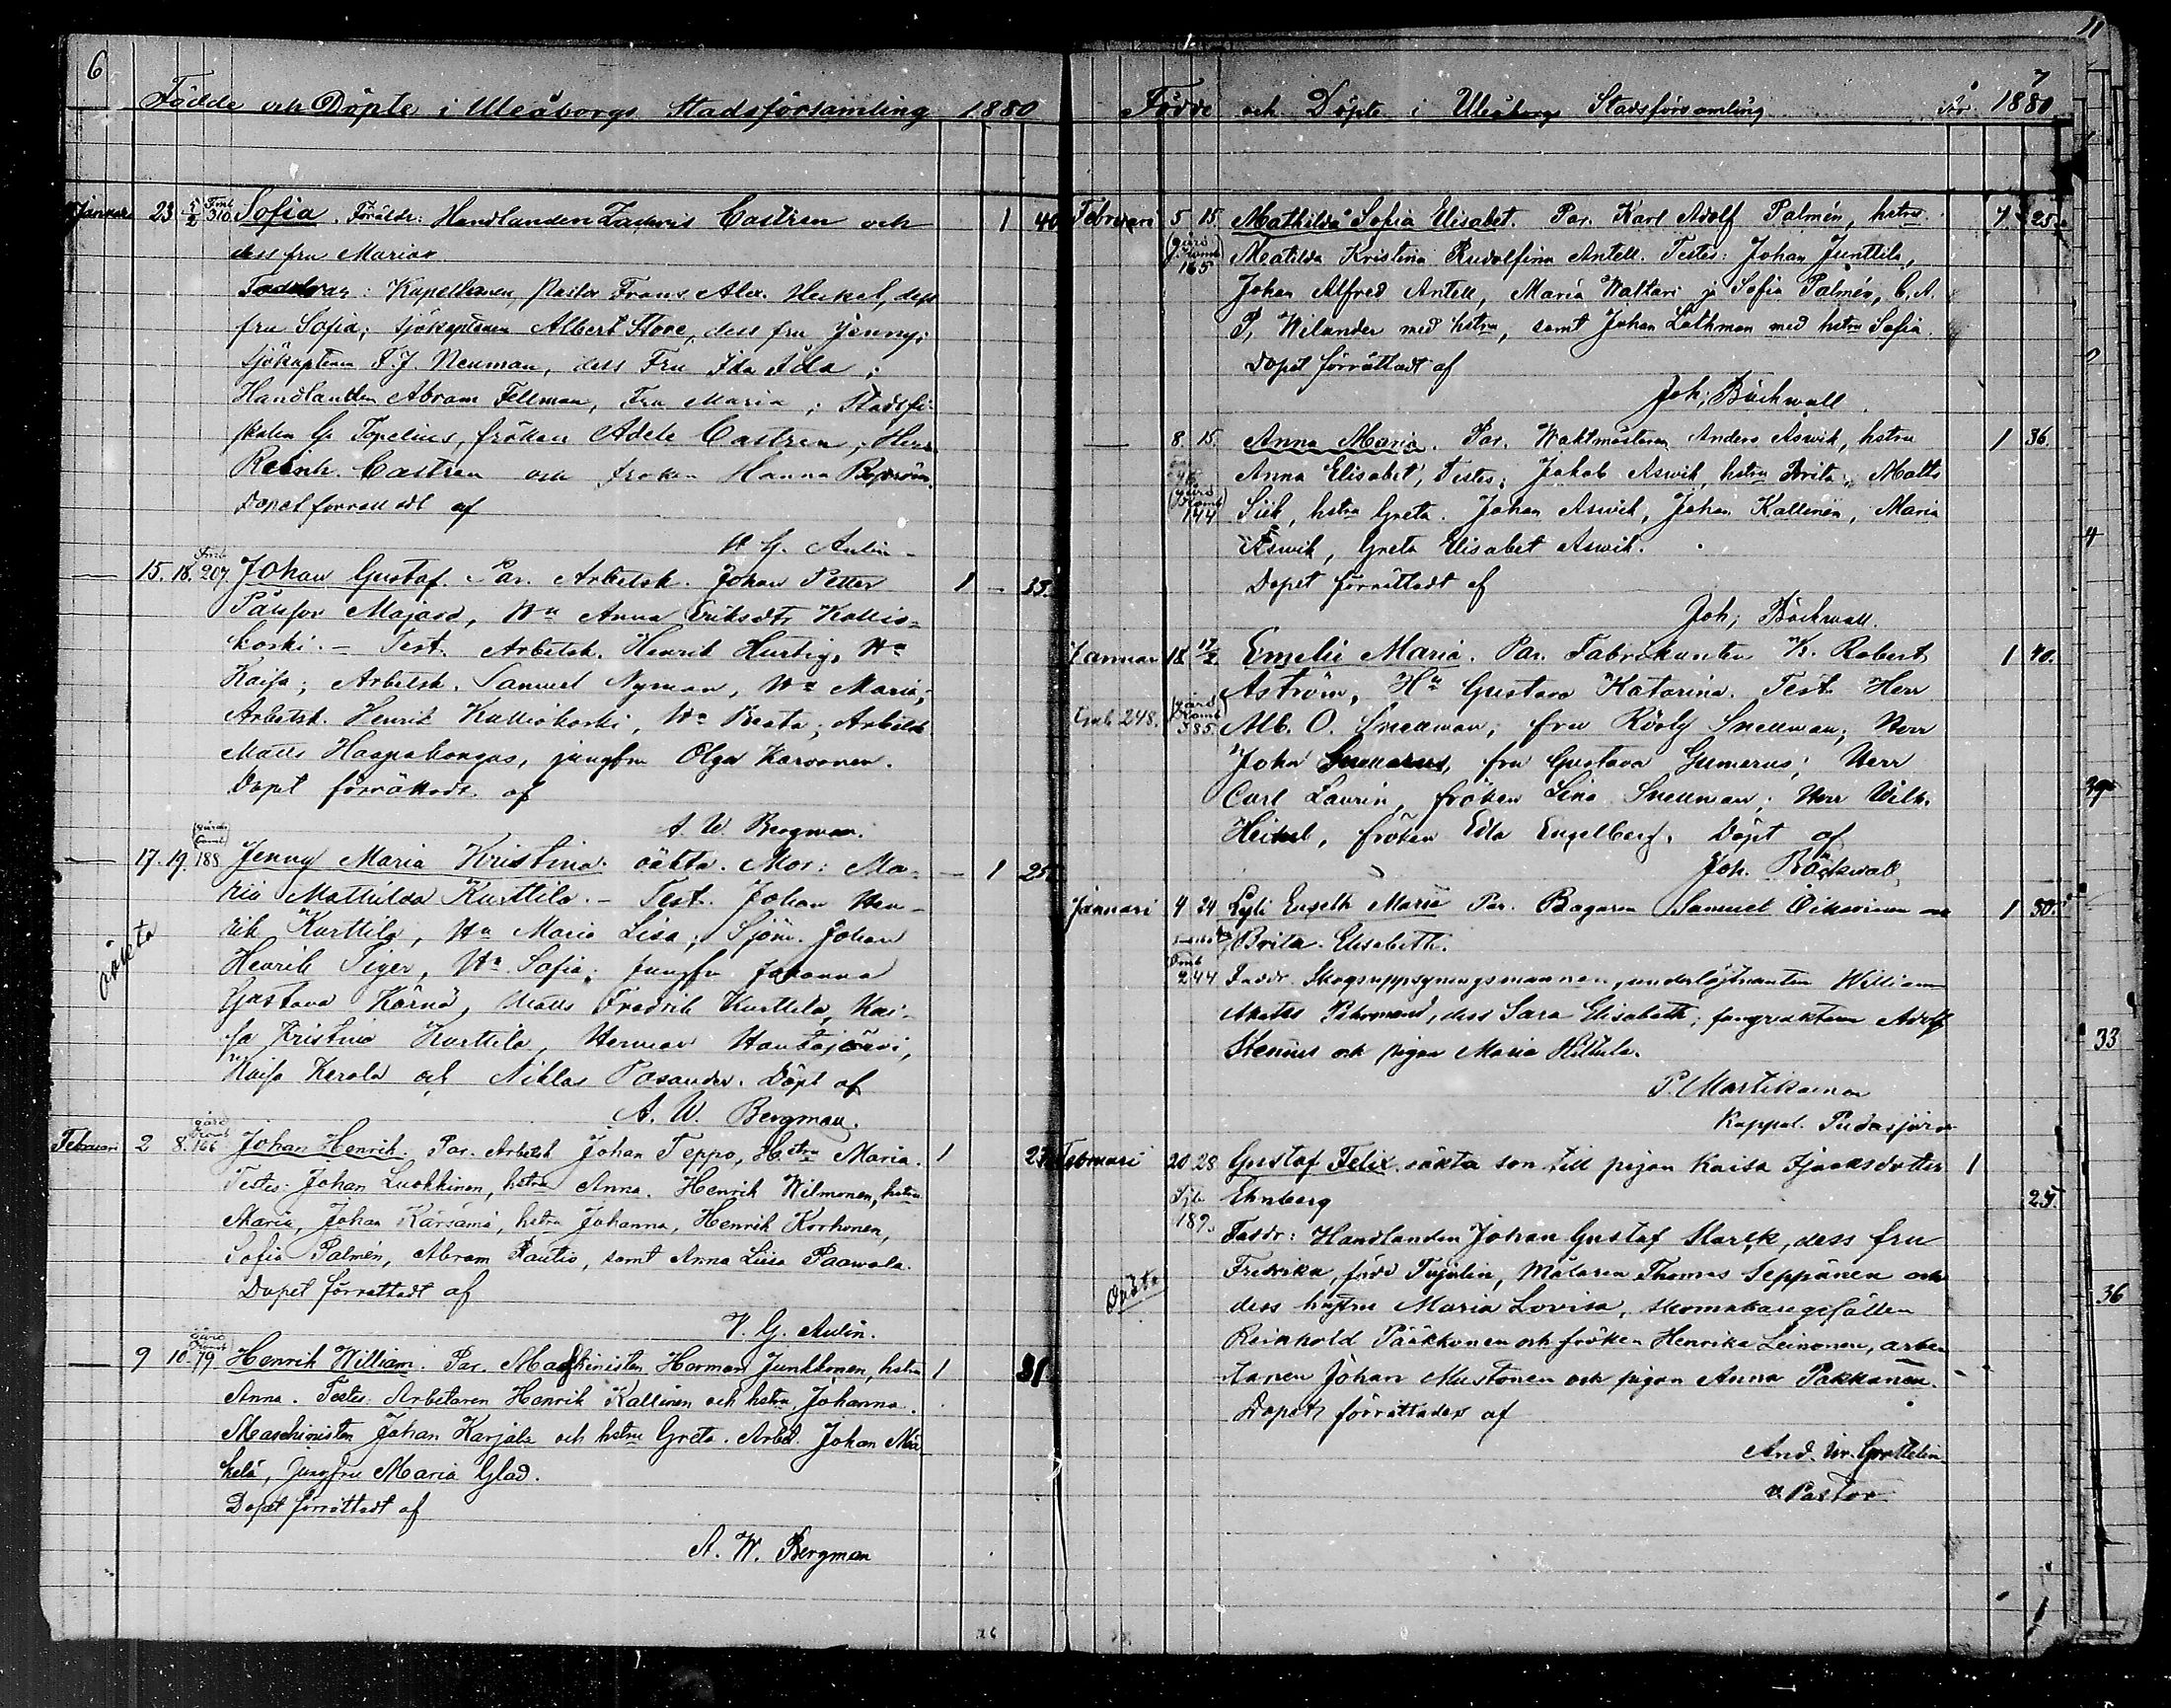 6
Födde och Döpte i Uleåborgs Stadsförsamling 1880
Januari 23 4/2 Fmb 310 Sofia. Föräldr: Handlanden Zachris Castren och 1 40
dess fru Maria
Faddrar: Kapellanen, Pastor Frans Alex. Heikel, dess
fru Sofia; Sjökaptenen Albert Hove, dess fru Jenny;
Sjökapten F. J. Neuman, dess Fru Ida Ada;
Handlanden Abram Fellman, Fru Maria; Stadsfi-
skalen G. Topelius, fröken Adele Castren; Herr
Reinh. Castren och fröken Hanna
Dopet förrättadt af
V. G. Aulin
— 15. 18. Fmb 207. Johan Gustaf. Par. Arbetsk. Johan Petter 1 — 35.
Majava, Hu Anna Eriksdtr Kallio-
koski. — Test. Arbetsk. Henrik Hurtig, Hu
Kaisa; Arbetsk. Samuel Nyman, Hu Maria;
Arbetsk. Henrik Kalliokoski, Hu Beata; Arbetsk
Matts Haapakangas, jungfru Olga Karvonen.
Dopet förrättadt af
A. W. Bergman.
— 17. 19. 188 Jenny Maria Kristina. oäkta. Mor: Ma- — 1 25
ria Mathilda Kurttila. — Test. Johan Hen-
oäkta
rik Kurttila, Hu Maria Lisa; Sjöm. Johan
Henrik Tiger, Hu Sofia; jungfu Johanna
Gustava Kärnä, Matts Fredrik Kurttila, Kai-
sa Kristina Kurttila, Herman Hautajärvi,
Kaisa Kerola och Niklas Pasander. Döpt af
A. W. Bergman.
Februari 2 8. gård Komb 166 Johan Henrik. Par. Arbetsk Johan Teppo, Hstru Maria. 1 27
Testes: Johan Luokkinen, hstru Anna. Henrik Wilmonen, hstru
Maria, Johan Kärsämä, hstru Johanna, Henrik Korhonen,
Sofia Palmén, Abram Rautio, samt Anna Liisa Paawola.
Dopet förrättadt af
V. G. Aulin.
— 9 10. gård Komb 79. Henrik William. Par. Maschinisten Herman Junttonen, hstru 1 31
Anna. Testes: Arbetaren Henrik Kallinen och hstru Johanna.
Maschinisten Johan Karjala och hstru Greta. Arbet. Johan Mä-
kelä, Jungfru Maria Glad.
Dopet förrättadt af
A. W. Bergman
7
Födde och Döpte i Uleåborgs Stadsförsamling År 1880
Februari 5 15. Mathilda Sofia Elisabet. Par. Karl Adolf Palmén, hstru 1. 25.
(gård Komb 165) Matilda Kristina Rudolfina Antell. Testes: Johan Junttila,
Johan Alfred Antell, Maria Waltari j Sofia Palmén, C. A.
P. Wilander med hstru, samt Johan Lathman med hstru Sofia.
Dopet förrättadt af
Joh; Bäckwall.
— 8. 15. Anna Maria. Par. Waktmästaren Anders Aswik, hstru 1 36.
Anna Elisabet; Testes: Jakob Aswik, hstru Brita; Matts
(gård Komb 144 Siik, hstru Greta. Johan Aswik, Johan Kallinen, Maria
Aswik, Greta Elisabet Aswik.
Dopet förrättadt af
Joh; Bäckwall.
Januari 18 17/2 Emelie Maria. Par. Fabrikanten K. Robert 1 40.
Åström, Hu Gustava Katarina. Test. Herr
Fmb 248. (gård Komb 385. Alb. O. Snellman; fru Snellman; Herr
John fru Gustava Gumerus; Herr
Carl Laurin, fröken Lina Snellman; Herr Wilh.
Heikel, fröken Edla Engelberg. Döpt af
Joh. Bäckwall
Januari 4 24 Maria Par. Bagaren Samuel Oikarinen och 1 30.
Brita Elisabeth.
Fmb 244 Faddr. Skogsuppsyningsmannen, underlöjtnanten William
dess Sara Elisabeth; Adolf
Stenius och pigan Maria Hiltula.
P. Martikainen
Kappel. Pudasjärvi
Februari 20 28 Gustaf Felix oäkta son till pigan Kaisa Isaaksdotter 1
189. Ehnberg 25.
Faddr: Handlanden Johan Gustaf Marck, dess fru
Fredrika, född Tujulin, Målaren Thomas Seppänen och
Oäkta
dess hustru Maria Lovisa, skomakaregesällen
Reinhold Pääkkönen och fröken Henrika Leinonen, arbe-
taren Johan Mustonen och pigan Anna Pakkanen.
Dopet förrättades af
And. Wr.
v. Pastor